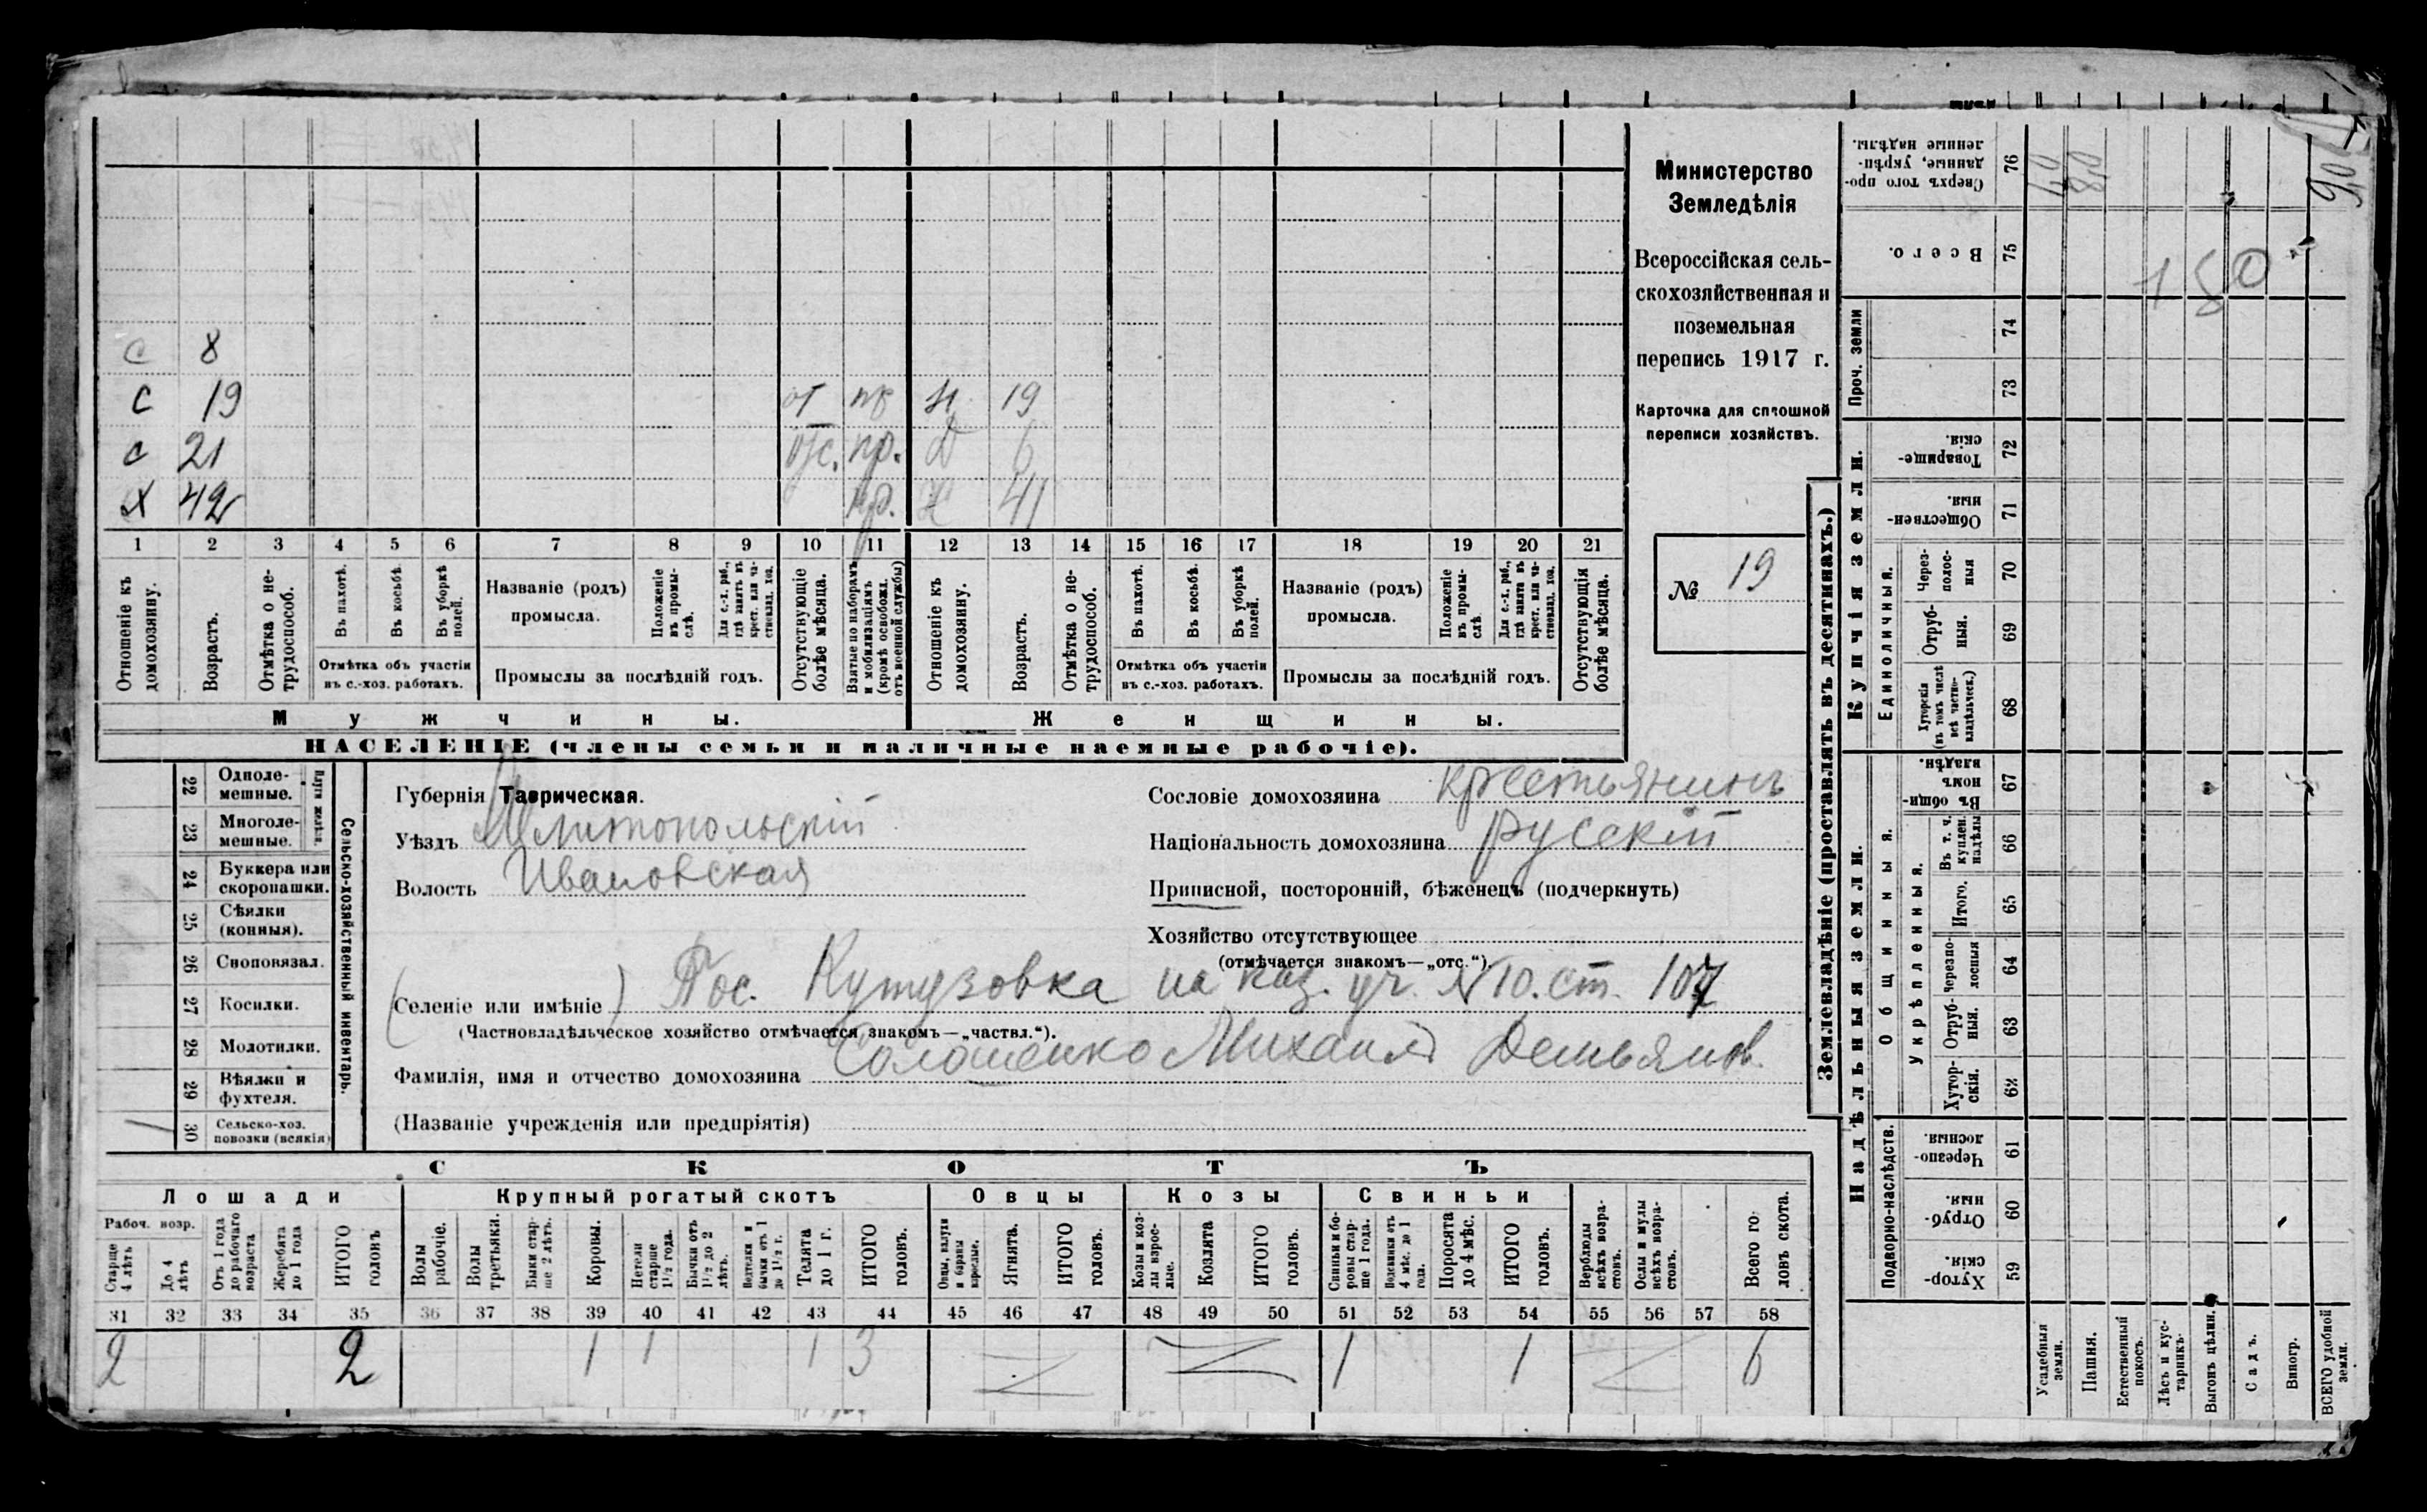 с 8
с 19 от пр н 19
с 21 отс. пр. д 6
х 42 пр. ж 41
1 2 3 4 5 6 7 8 9 10 11 12 13 14 15 16 17 18 19 20 21
Отношеніе къ домохозяину.
Возрастъ.
Отмѣтка о не-трудоспособ.
Въ пахотѣ.
Въ косьбѣ.
Въ уборкѣ полей.
Отмѣтка объ участіи въ с.-хоз. работахъ.
Названіе (родъ) промысла.
Положеніе въ промы-слѣ.
Для с.-х. раб., гдѣ занятъ въ крест. или ча-стновлад. хоз.
Промыслы за послѣдній годъ.
Отсутствующіе болѣе мѣсяца.
Взятые по наборамъ и мобилизаціямъ (кромѣ освобожд. отъ военной службы)
Отношеніе къ домохозяину.
Возрастъ.
Отмѣтка о не-трудоспособ.
Въ пахотѣ.
Въ косьбѣ.
Въ уборкѣ полей.
Отмѣтка объ участіи въ с.-хоз. работахъ.
Названіе (родъ) промысла.
Положеніе въ промы-слѣ.
Для с.-х. раб., гдѣ занята въ крест. или ча-стновлад. хоз.
Промыслы за послѣдній годъ.
Отсутствующія болѣе мѣсяца.
Мужчины. Женщины.
НАСЕЛЕНІЕ (члены семьи и наличные наемные рабочіе).
Министерство
Земледѣлія
Всероссійская сель-
скохозяйственная и
поземельная
перепись 1917 г.
Карточка для сплошной
переписи хозяйствъ.
№ 19
22 Одноле-мешные.
23 Многоле-мешные.
24 Буккера или скоропашки.
25 Сѣялки (конныя).
26 Сноповязал.
27 Косилки.
28 Молотилки.
29 Вѣялки и фухтеля.
30 Сельско-хоз. повозки (всякія) 1
Сельско-хозяйственный инвентарь.
Губернія Таврическая.
Уѣздъ Мелитопольскій
Волость Ивановская
Сословіе домохозяина крестьянинъ
Національность домохозяина русскій
Приписной, посторонній, бѣженецъ (подчеркнуть)
Хозяйство отсутствующее
(отмѣчается знакомъ—„отс.“)
(Селеніе или имѣніе) Пос. Кутузовка на каз. уч. №10. ст. 107
(Частновладѣльческое хозяйство отмѣчается знакомъ—„частвл.“).
Фамилія, имя и отчество домохозяина Солошенко Михаилъ Демьянов.
(Названіе учрежденія или предпріятія)
СКОТЪ
Лошади Крупный рогатый скотъ Овцы Козы Свиньи
Рабоч. возр.
Старше 4 лѣтъ
До 4 лѣтъ
Отъ 1 года до рабочаго возраста
Жеребята до 1 года
ИТОГО головъ
Волы рабочіе.
Волы третьяки.
Быки стар-ше 2 лѣтъ.
Коровы.
Нетели старше 1½ года.
Бычки отъ 1½ до 2 лѣтъ.
Подтелки и бычки отъ 1 до 1½ г.
Телята до 1 г.
ИТОГО головъ.
Овцы, валухи и бараны взрослые.
Ягнята.
ИТОГО головъ.
Козы и коз-лы взрос-лые.
Козлята
ИТОГО головъ.
Свиньи и бо-ровы стар-ше 1 года.
Подсвинки отъ 4 мѣс. до 1 года.
Поросята до 4 мѣс.
ИТОГО головъ.
Верблюды всѣхъ возра-стовъ.
Ослы и мулы всѣхъ возра-стовъ.
Всего го-ловъ скота.
31 32 33 34 35 36 37 38 39 40 41 42 43 44 45 46 47 48 49 50 51 52 53 54 55 56 57 58
2 2 1 1 1 3 1 1 6
Землевладѣніе (проставлять въ десятинахъ.)
Надѣльныя земли. Купчія земли. Проч. земли
Подворно-наслѣдств.
Общинныя.
Укрѣпленныя.
Единоличныя.
Хутор-скія. 59
Отруб-ныя. 60
Черезпо-лосныя. 61
Хутор-скія. 62
Отруб-ныя. 63
Черезпо-лосныя 64
Итого. 65
Въ т. ч. куплен. надѣлы 66
Въ общин-номъ владѣн. 67
Хуторскія (въ томъ числѣ всѣ частно-владѣльческ.) 68
Отруб-ныя. 69
Через-полос-ныя 70
Обществен-ныя. 71
Товарище-скія. 72
73
74
Всего. 75
Сверхъ того про-данные, укрѣп-ленные надѣлы. 76
Усадебныя земли.
Пашня.
Естественный покосъ.
Лѣсъ и кус-тарникъ.
Выгонъ цѣлин.
Садъ.
Виногр.
ВСЕГО удобной земли.
150